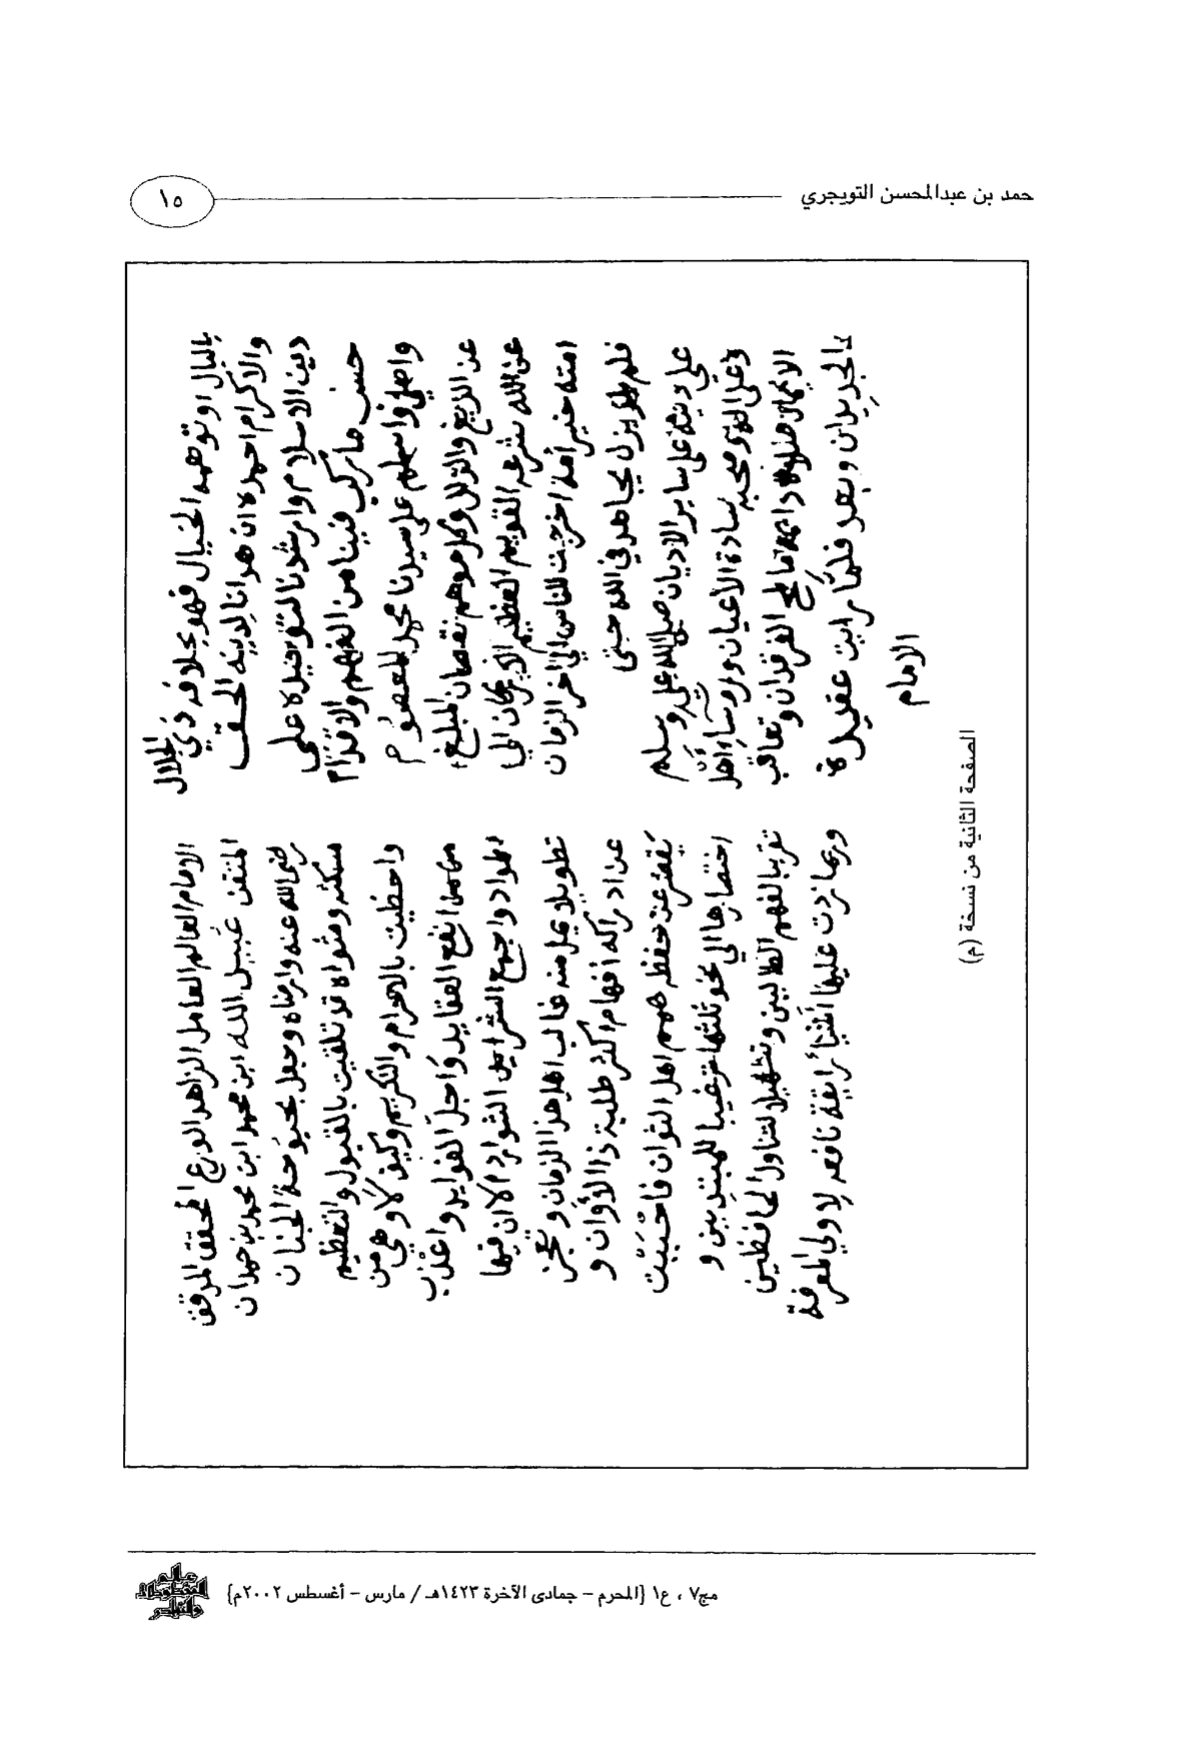 حمد بن عبدالمحسن التويجري
١٥
بالبال او توهمه الخيال فهو بخلافه ذي الجلال
والاكرام احمده ان هدانا لدينه الحق
دين الاسلام وارشدنا لتوفيقه على
حسب ما ركب فينا من الفهم والاقدام
واصلي واسلم على سيدنا محمد المعصوم
عن الزيغ والزلل وكل موهم نقصان المبلغ
عن الله شرعه القويم العظيم الى
امته خير أمة اخرجت للناس الى اخر الزمان
فلم يزل يجاهد في الله حتى
على دينه على ساير الاديان صلى الله عليه وسلم
وعلى اله وصحبه سادة الأعيان وروساء أهل
الايمان صلاة دائمة ما لمح الفرقدان وتعاقب
الجديدان وبعد فلمّا رايت عقيدة
الامام
الامام العالم العامل الزاهد الورع المحقق المدقق
المتقن عبيد الله ابن محمد ابن محمد بن حمدان
رضي الله عنه وارضاه وجعل بحبوحة الجنان
مسكنه ومثواه قد تلقيت بالقبول والتعظيم
واحظيت بالاحرام والتكريم وكيف لا وهي من
من انفع العقايد واجلّ الفوايد واعذب
الموارد واجمع الشوارد الا ان فيها
تطويلا يمل منه غالب اهل هذا الزمان ويعجز
عن ادراكه أفهام اكثر طلبة ذا الأوان و
يقصر عن حفظه همم اهل التوان فاحببت
اختصارها الى نحو ثلثها ترغيبا للمبتديين و
تقريبا لفهم الطالبين وتسهيلا لتناول الحافظين
وربما زدت عليها أشيا رايقة نافعه لاولي المعرفة
الصفحة الثانية من نسخة (م)
عالم المخطوطات والنوادر
مج٧ ، ع١ {المحرم – جمادى الآخرة ١٤٢٣هـ / مارس – أغسطس ٢٠٠٢م}